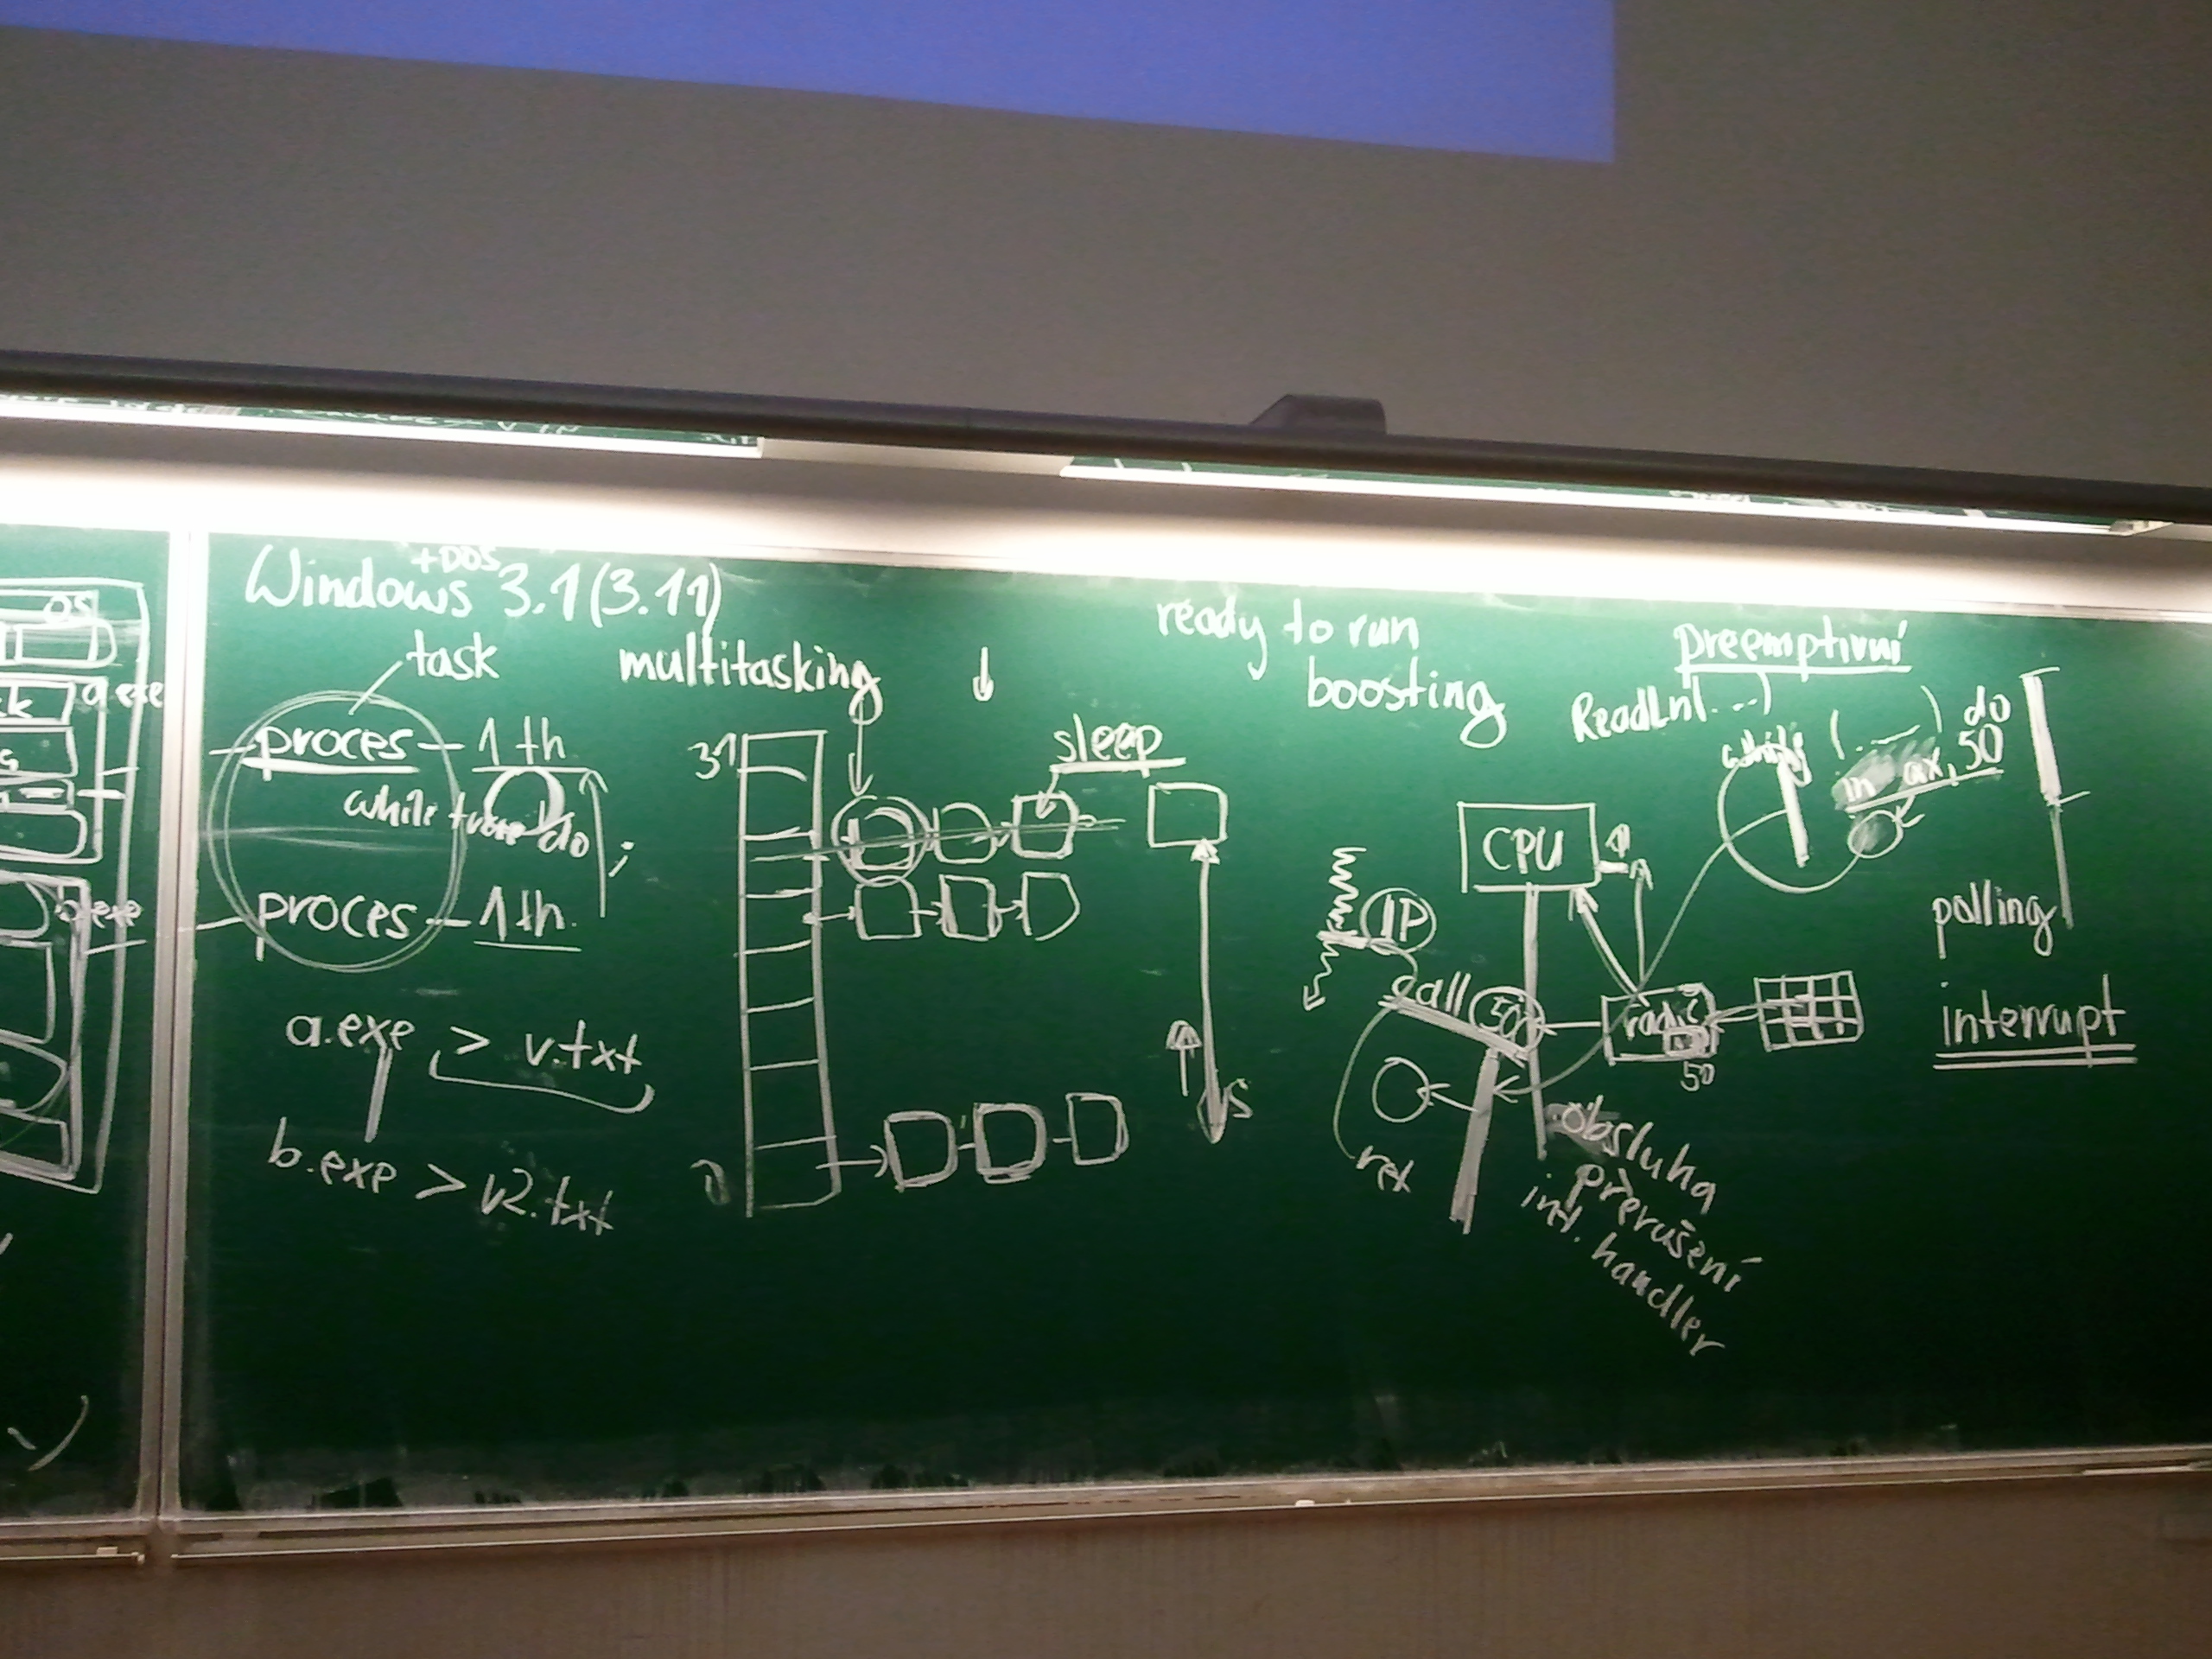 OS
a.exe
+DOS
Windows 3.1 (3.11)
task
multitasking
proces - 1 th
while true do ;
proces - 1 th.
a.exe > v.txt
b.exe > v2.txt
31
0
sleep
S
ready to run
boosting
preemptivní
ReadLn(...)
while (.....) do
in ax, 50
CPU
IP
call 50
řadič
50
ret
obsluha
přerušení
int. handler
polling
interrupt